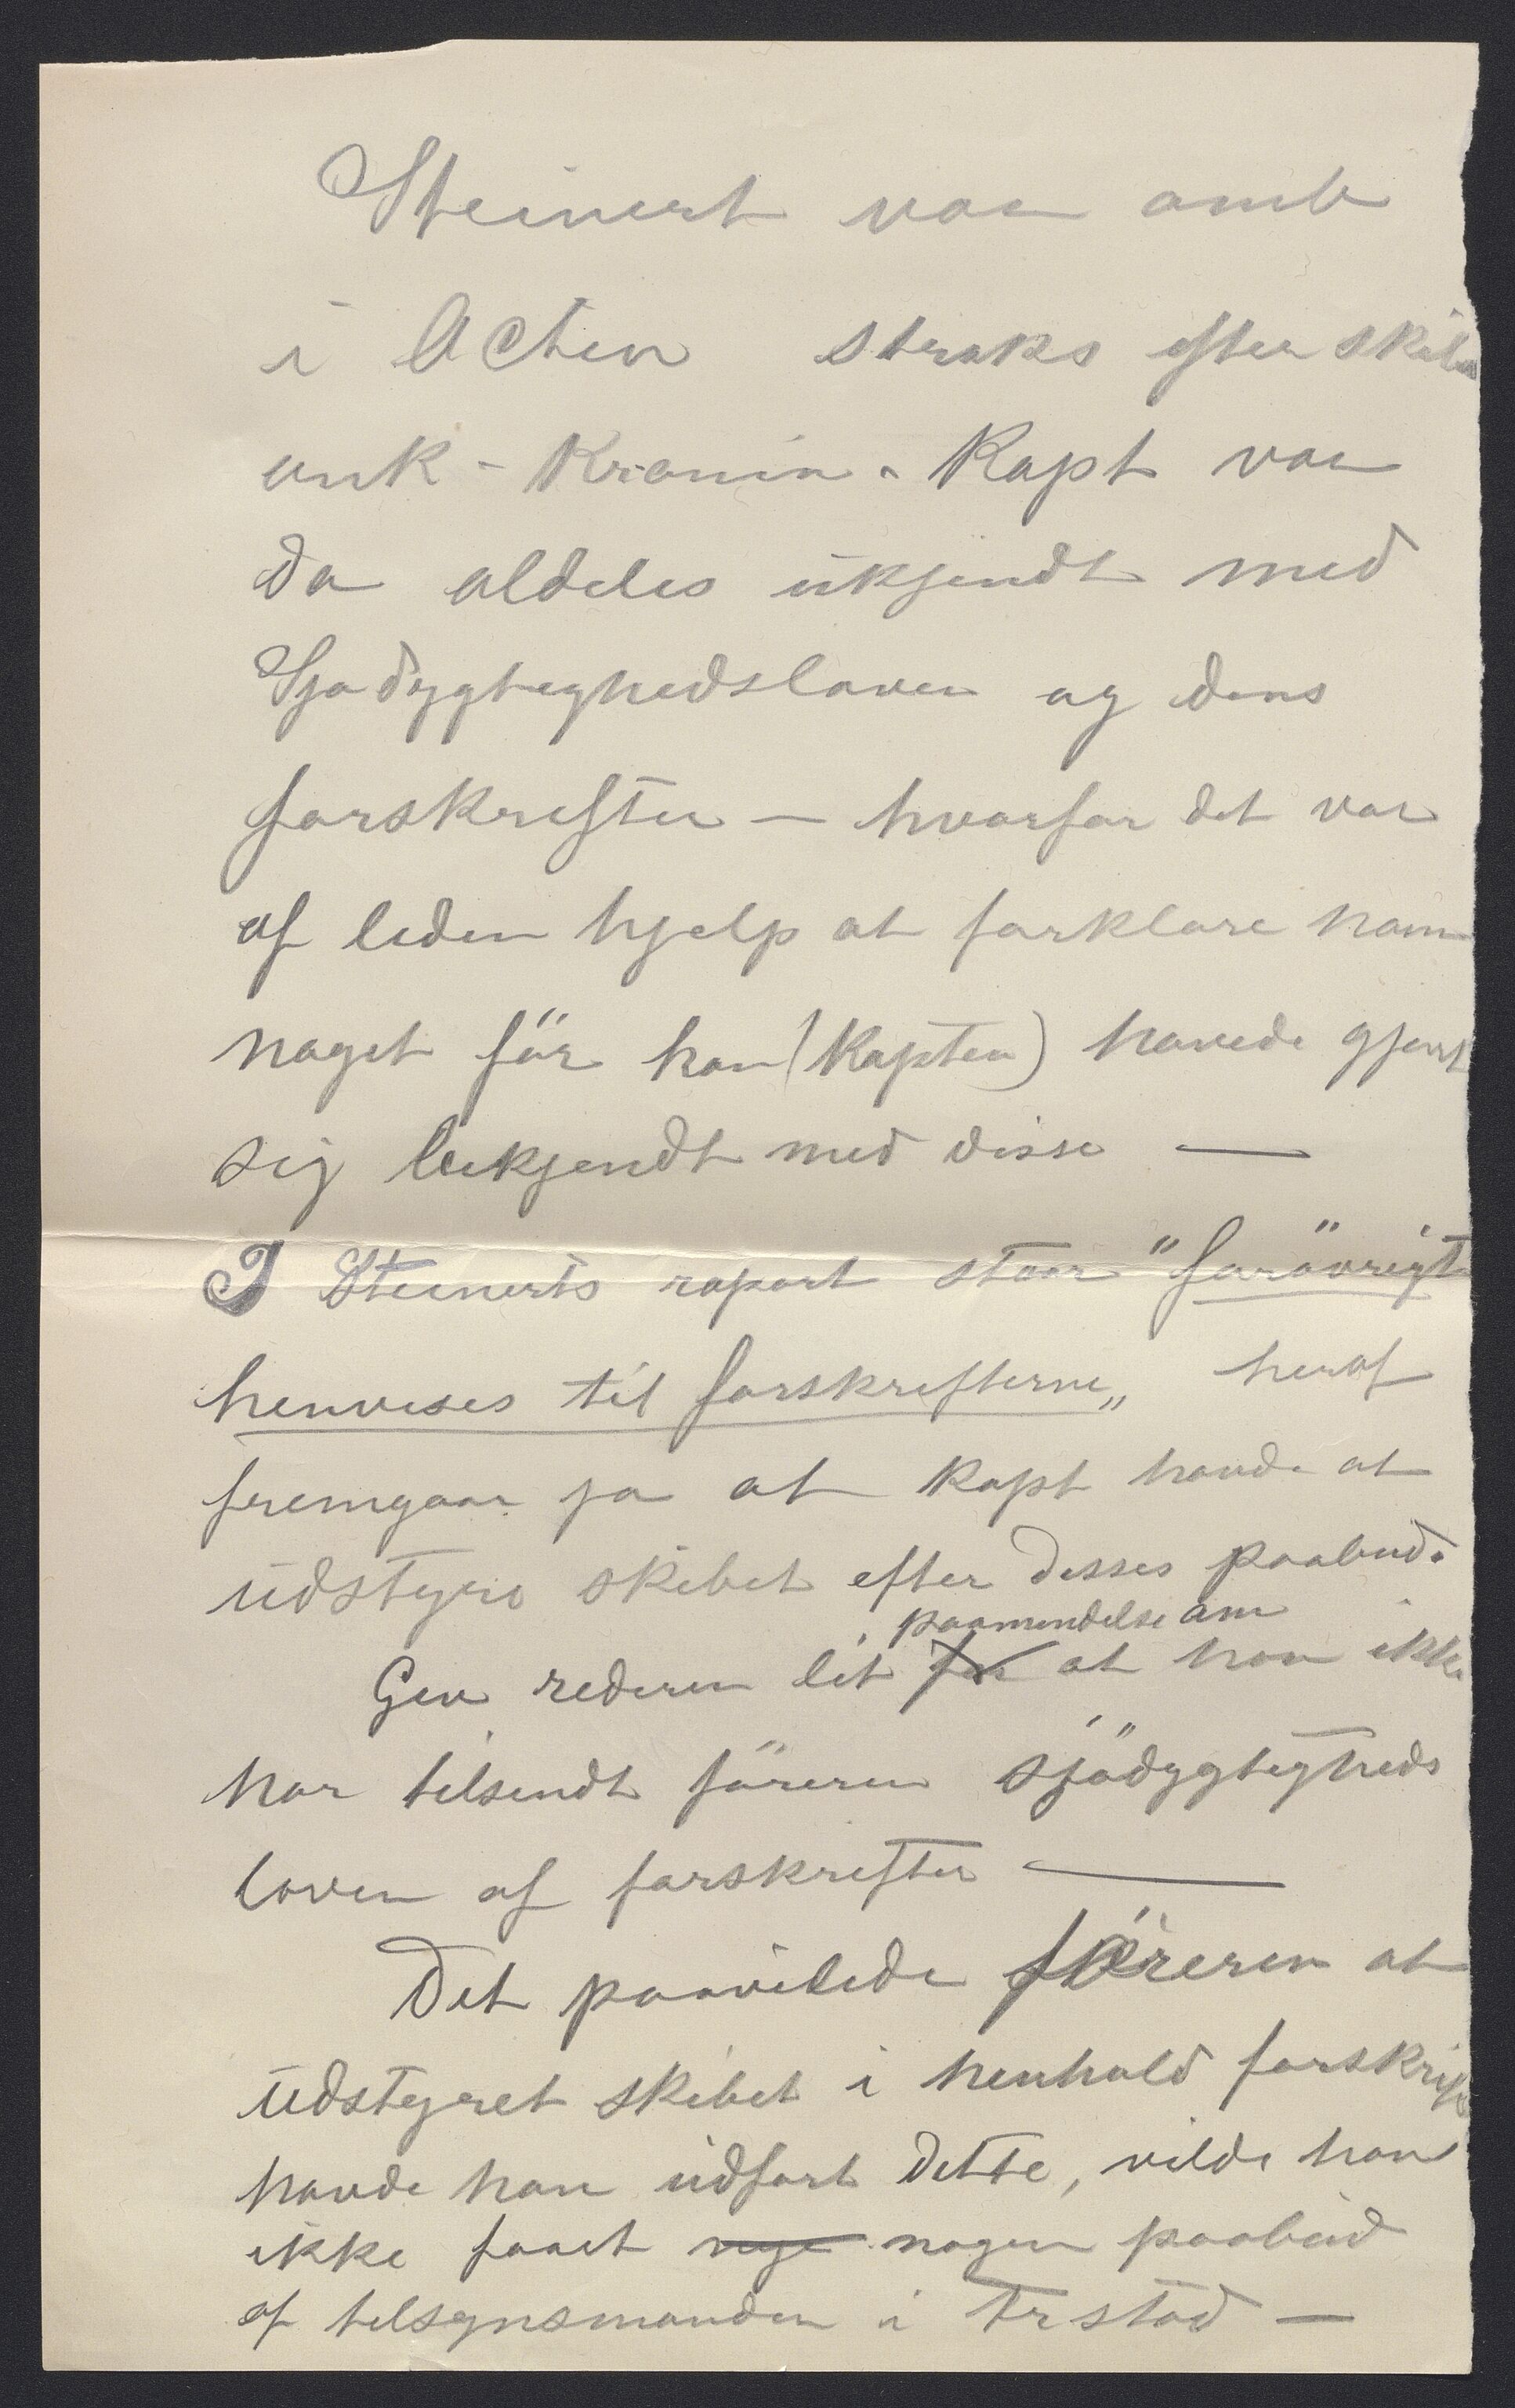 Steinert var amb
i Acten straks efter skib
ank - Kronin. Kapt var
da aldeles ukjendt med
Sjodygtighedsloven og dens
forskrifter — hvorfor det var
af liden hjelp at forklare ham
noget för han (Kapten) havede gjort
sig bekjendt med disse —
I Steinerts raport staar "forövrigt
henvises til forskrifterne„ heraf
fremgaar jo at Kapt havde at
udstyre skibet efter disses paabud.
paamindelse om
Giv rederen lit for at han ikke
har tilsendt föreren sjödygtigheds
loven af forskrifter —
Det paavilede föreren at
udstyret skibet i henhold forskrif
havde han udfort dette, vilde han
ikke faaet noge nogen paabud
af tilsynsmanden i Frstad —